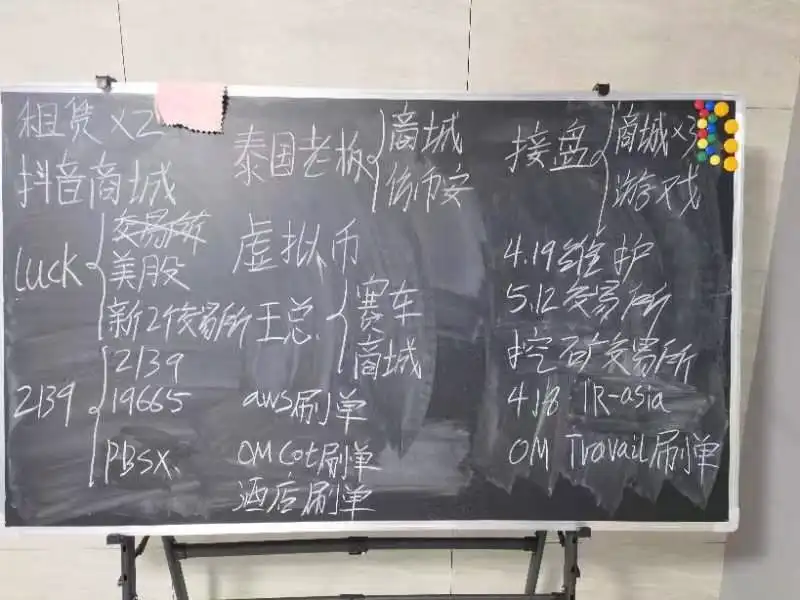 租赁 x2
抖音商城
luck
交易所
美股
新2个交易所
2139
2139
19665
PBSX.
泰国老板
商城
仿币安
虚拟币
王总.
赛车
商城
aws刷单
OM Cot刷单
酒店刷单
接盘
商城 x3
游戏
4.19维护
5.12交易所
挖矿交易所
4.18 IR-asia
OM Travail刷单